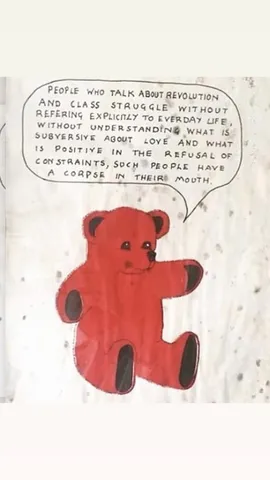 PEOPLE WHO TALK ABOUT REVOLUTION
AND CLASS STRUGGLE WITHOUT
REFERING EXPLICITLY TO EVERDAY LIFE,
WITHOUT UNDERSTANDING WHAT IS
SUBVERSIVE ABOUT LOVE AND WHAT
IS POSITIVE IN THE REFUSAL OF
CONSTRAINTS, SUCH PEOPLE HAVE
A CORPSE IN THEIR MOUTH.